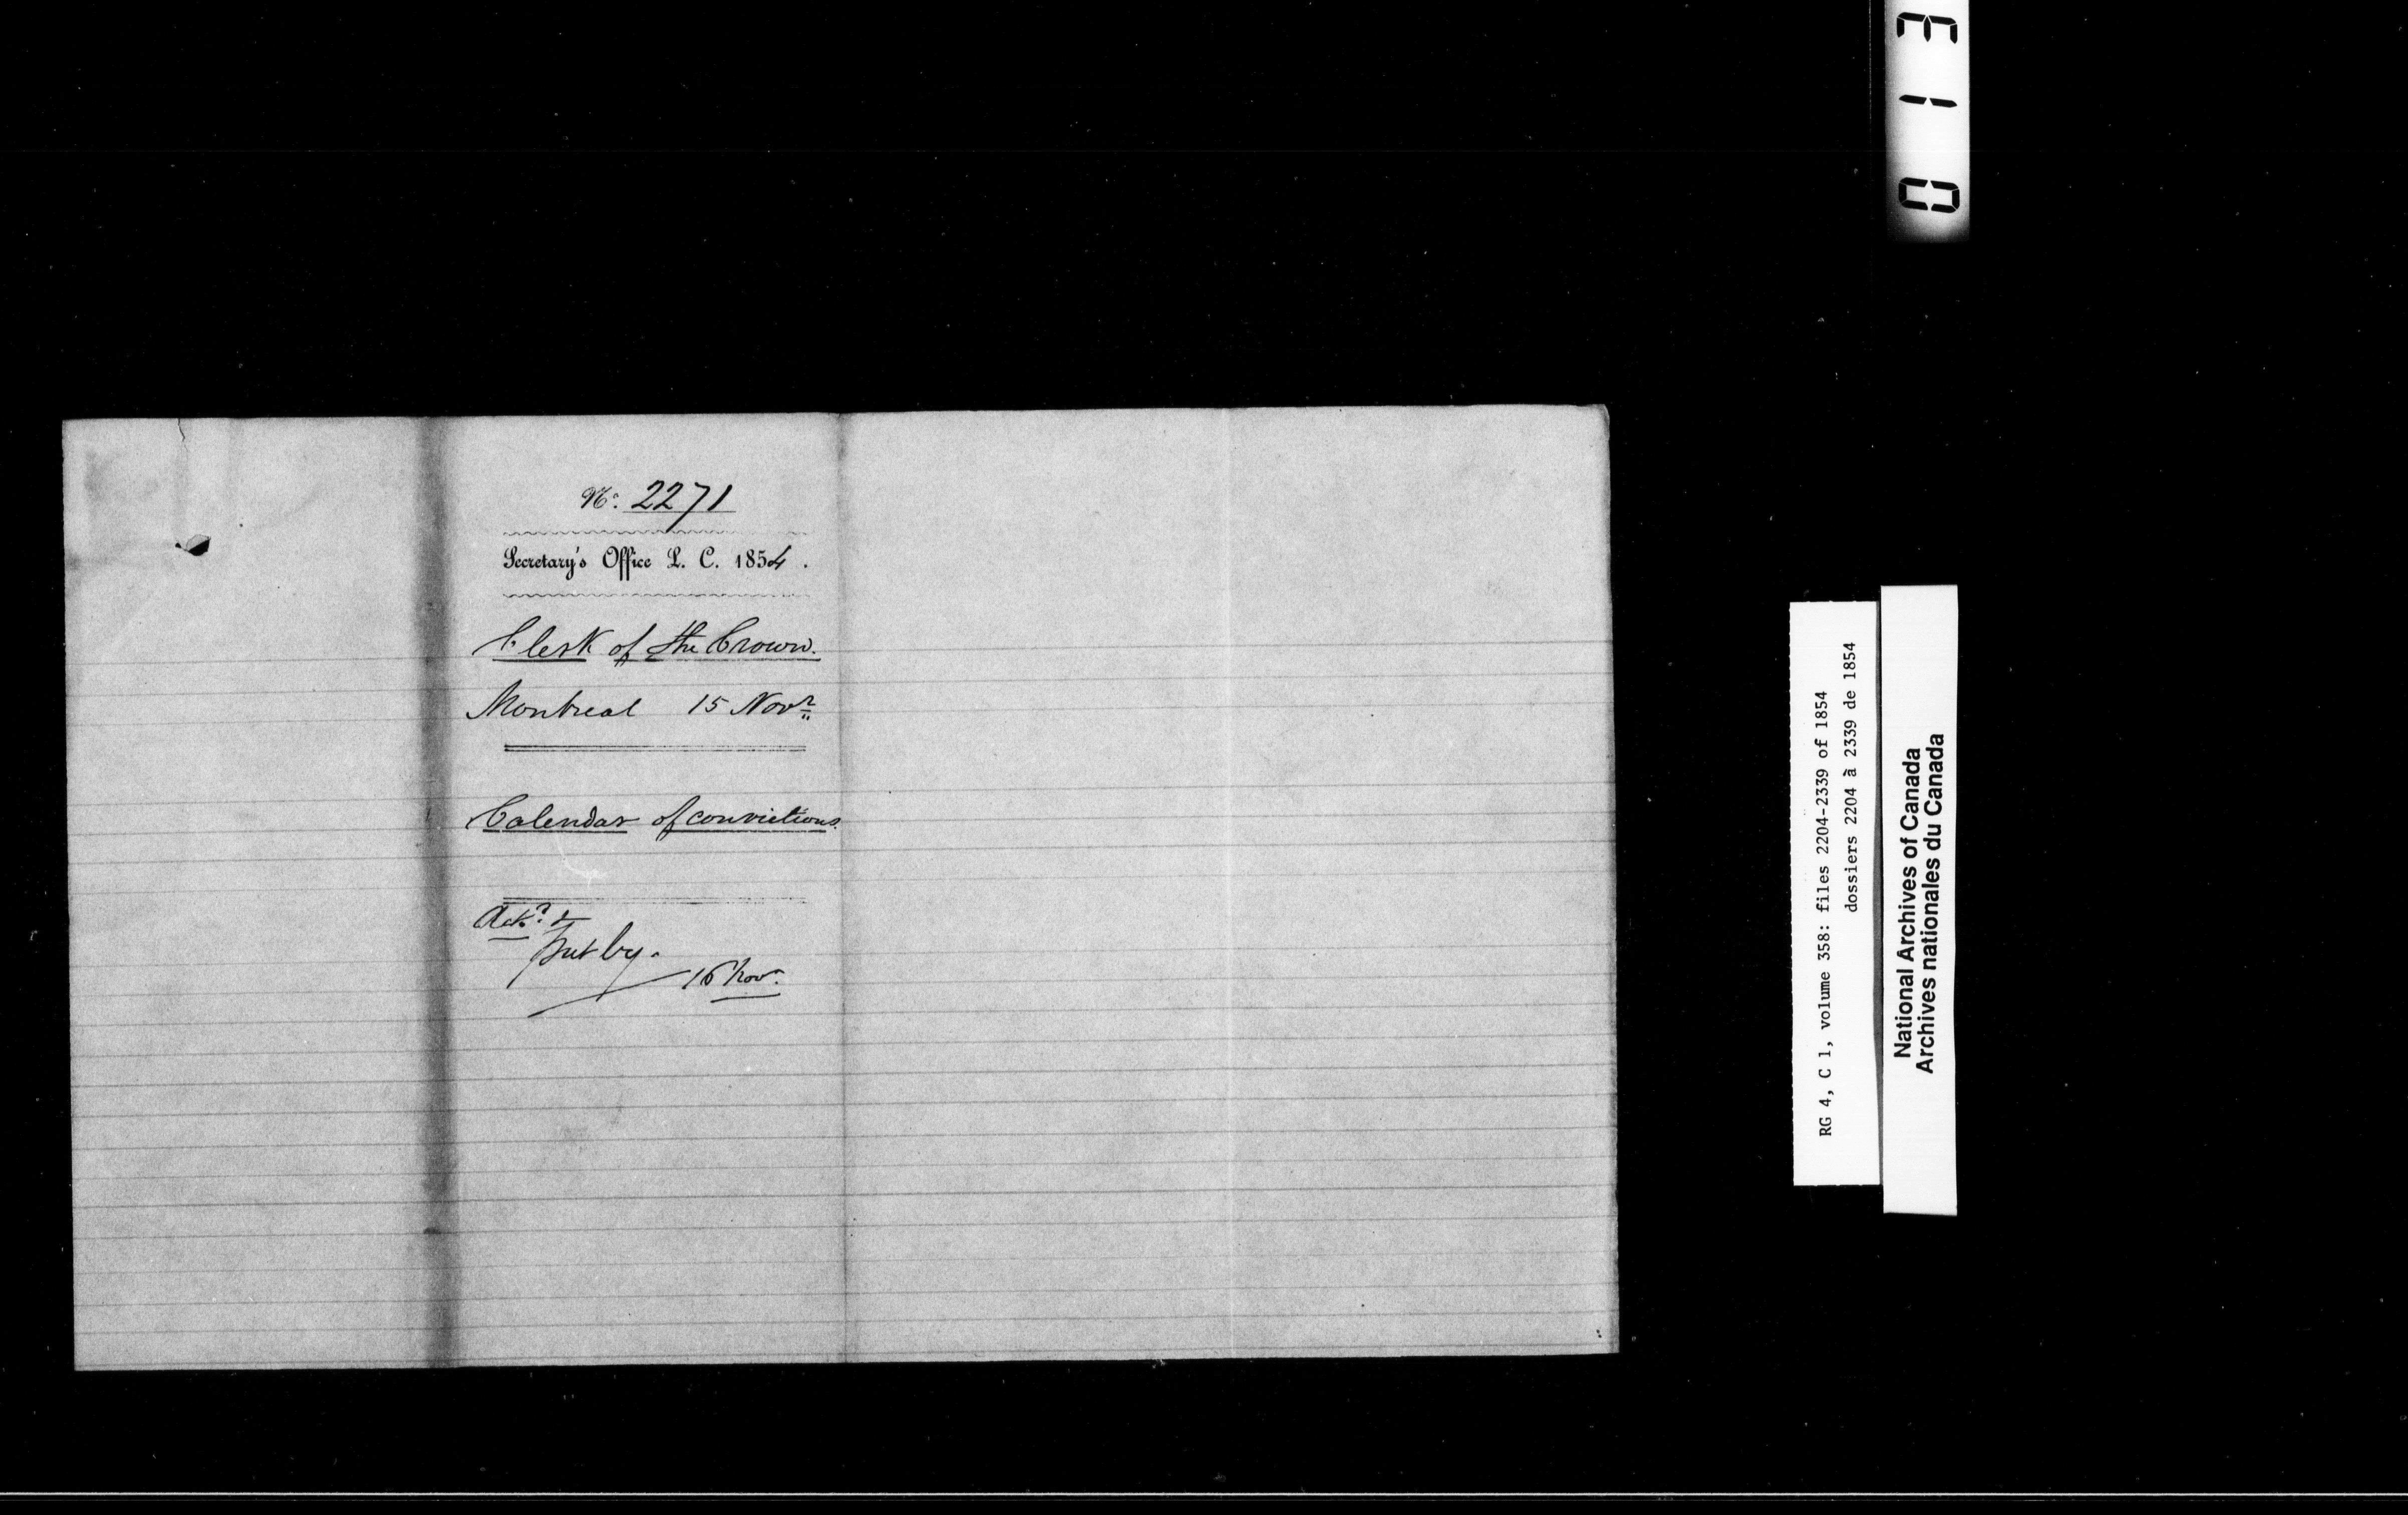 No. 2271
Secretary's Office L. C. 1854.
Clerk of the Crown.
Montreal 15 Novr
Calendar of convictions.
Ackd &
Put by.
16 Novr.
013
RG 4, C 1, volume 358: files 2204-2339 of 1854
dossiers 2204 à 2339 de 1854
National Archives of Canada
Archives nationales du Canada